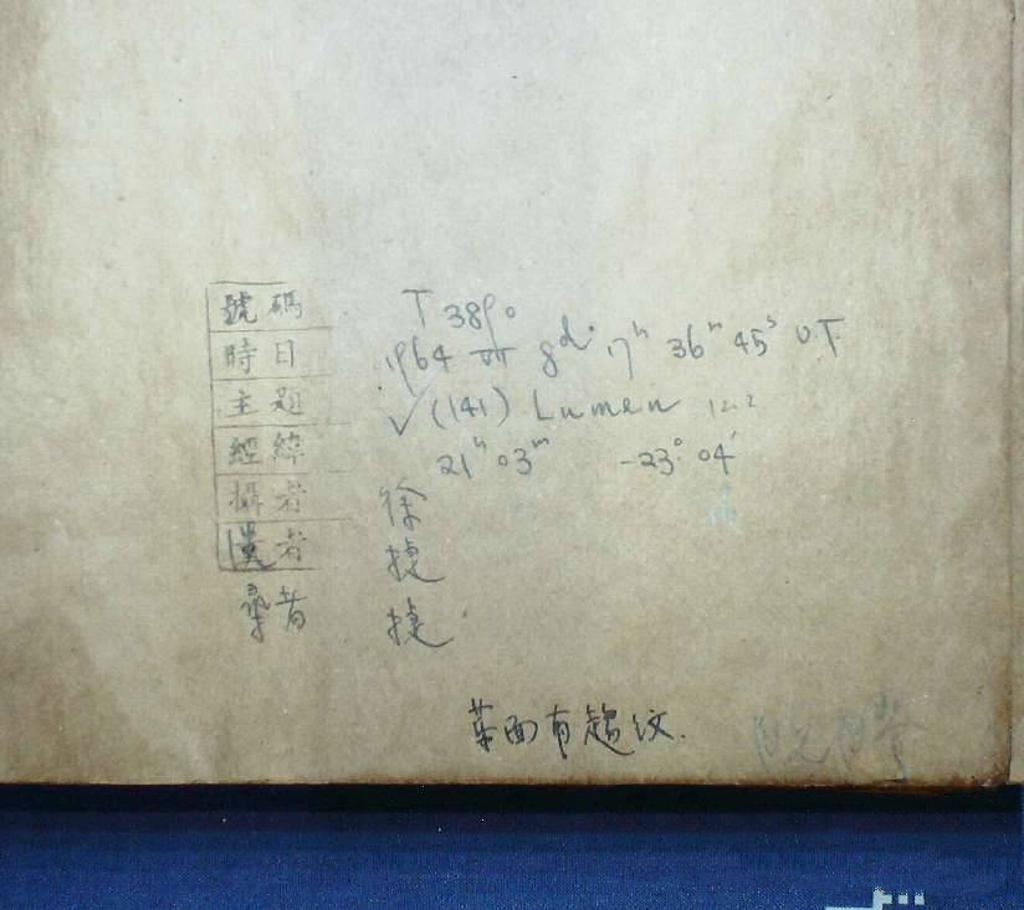 號碼 T 3890
時日 1964 VII 8d 17h 36m 45s U.T.
主題 ✓(141) Lumen 12.2
經緯 21h 03m -23° 04′
攝者 徐
者 捷
者 捷
面有 紋.